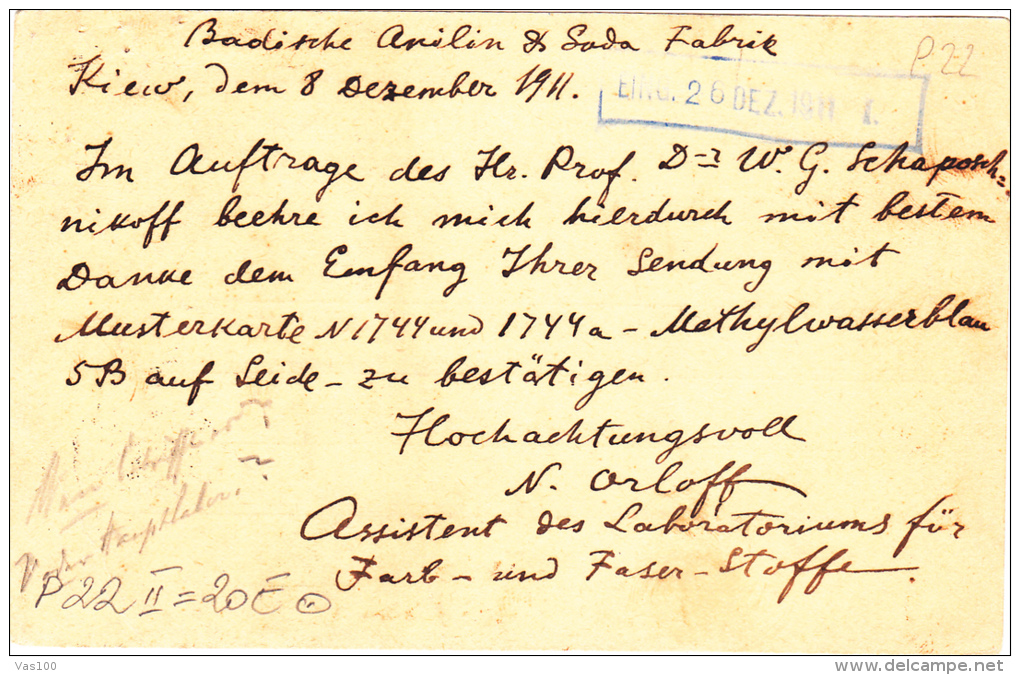 Badische Anilin & Soda Fabrik
P 22
Kiew, dem 8 Dezember 1911.
EING. 26 DEZ. 1911 1.
Im Auftrage des Hr. Prof. D-r W. G. Schaposch=
nikoff beehre ich mich hierdurch mit bestem
Danke dem Emfang Ihrer Sendung mit
Musterkarte N 1744 und 1744a – Methylwasserblau
5B auf Seide – zu bestätigen.
Hochachtungsvoll
N. Orloff
Assistent des Laboratoriums für
Farb – und Faser – Stoffe.
P 22 II = 20€
Vas100
delcampe.net